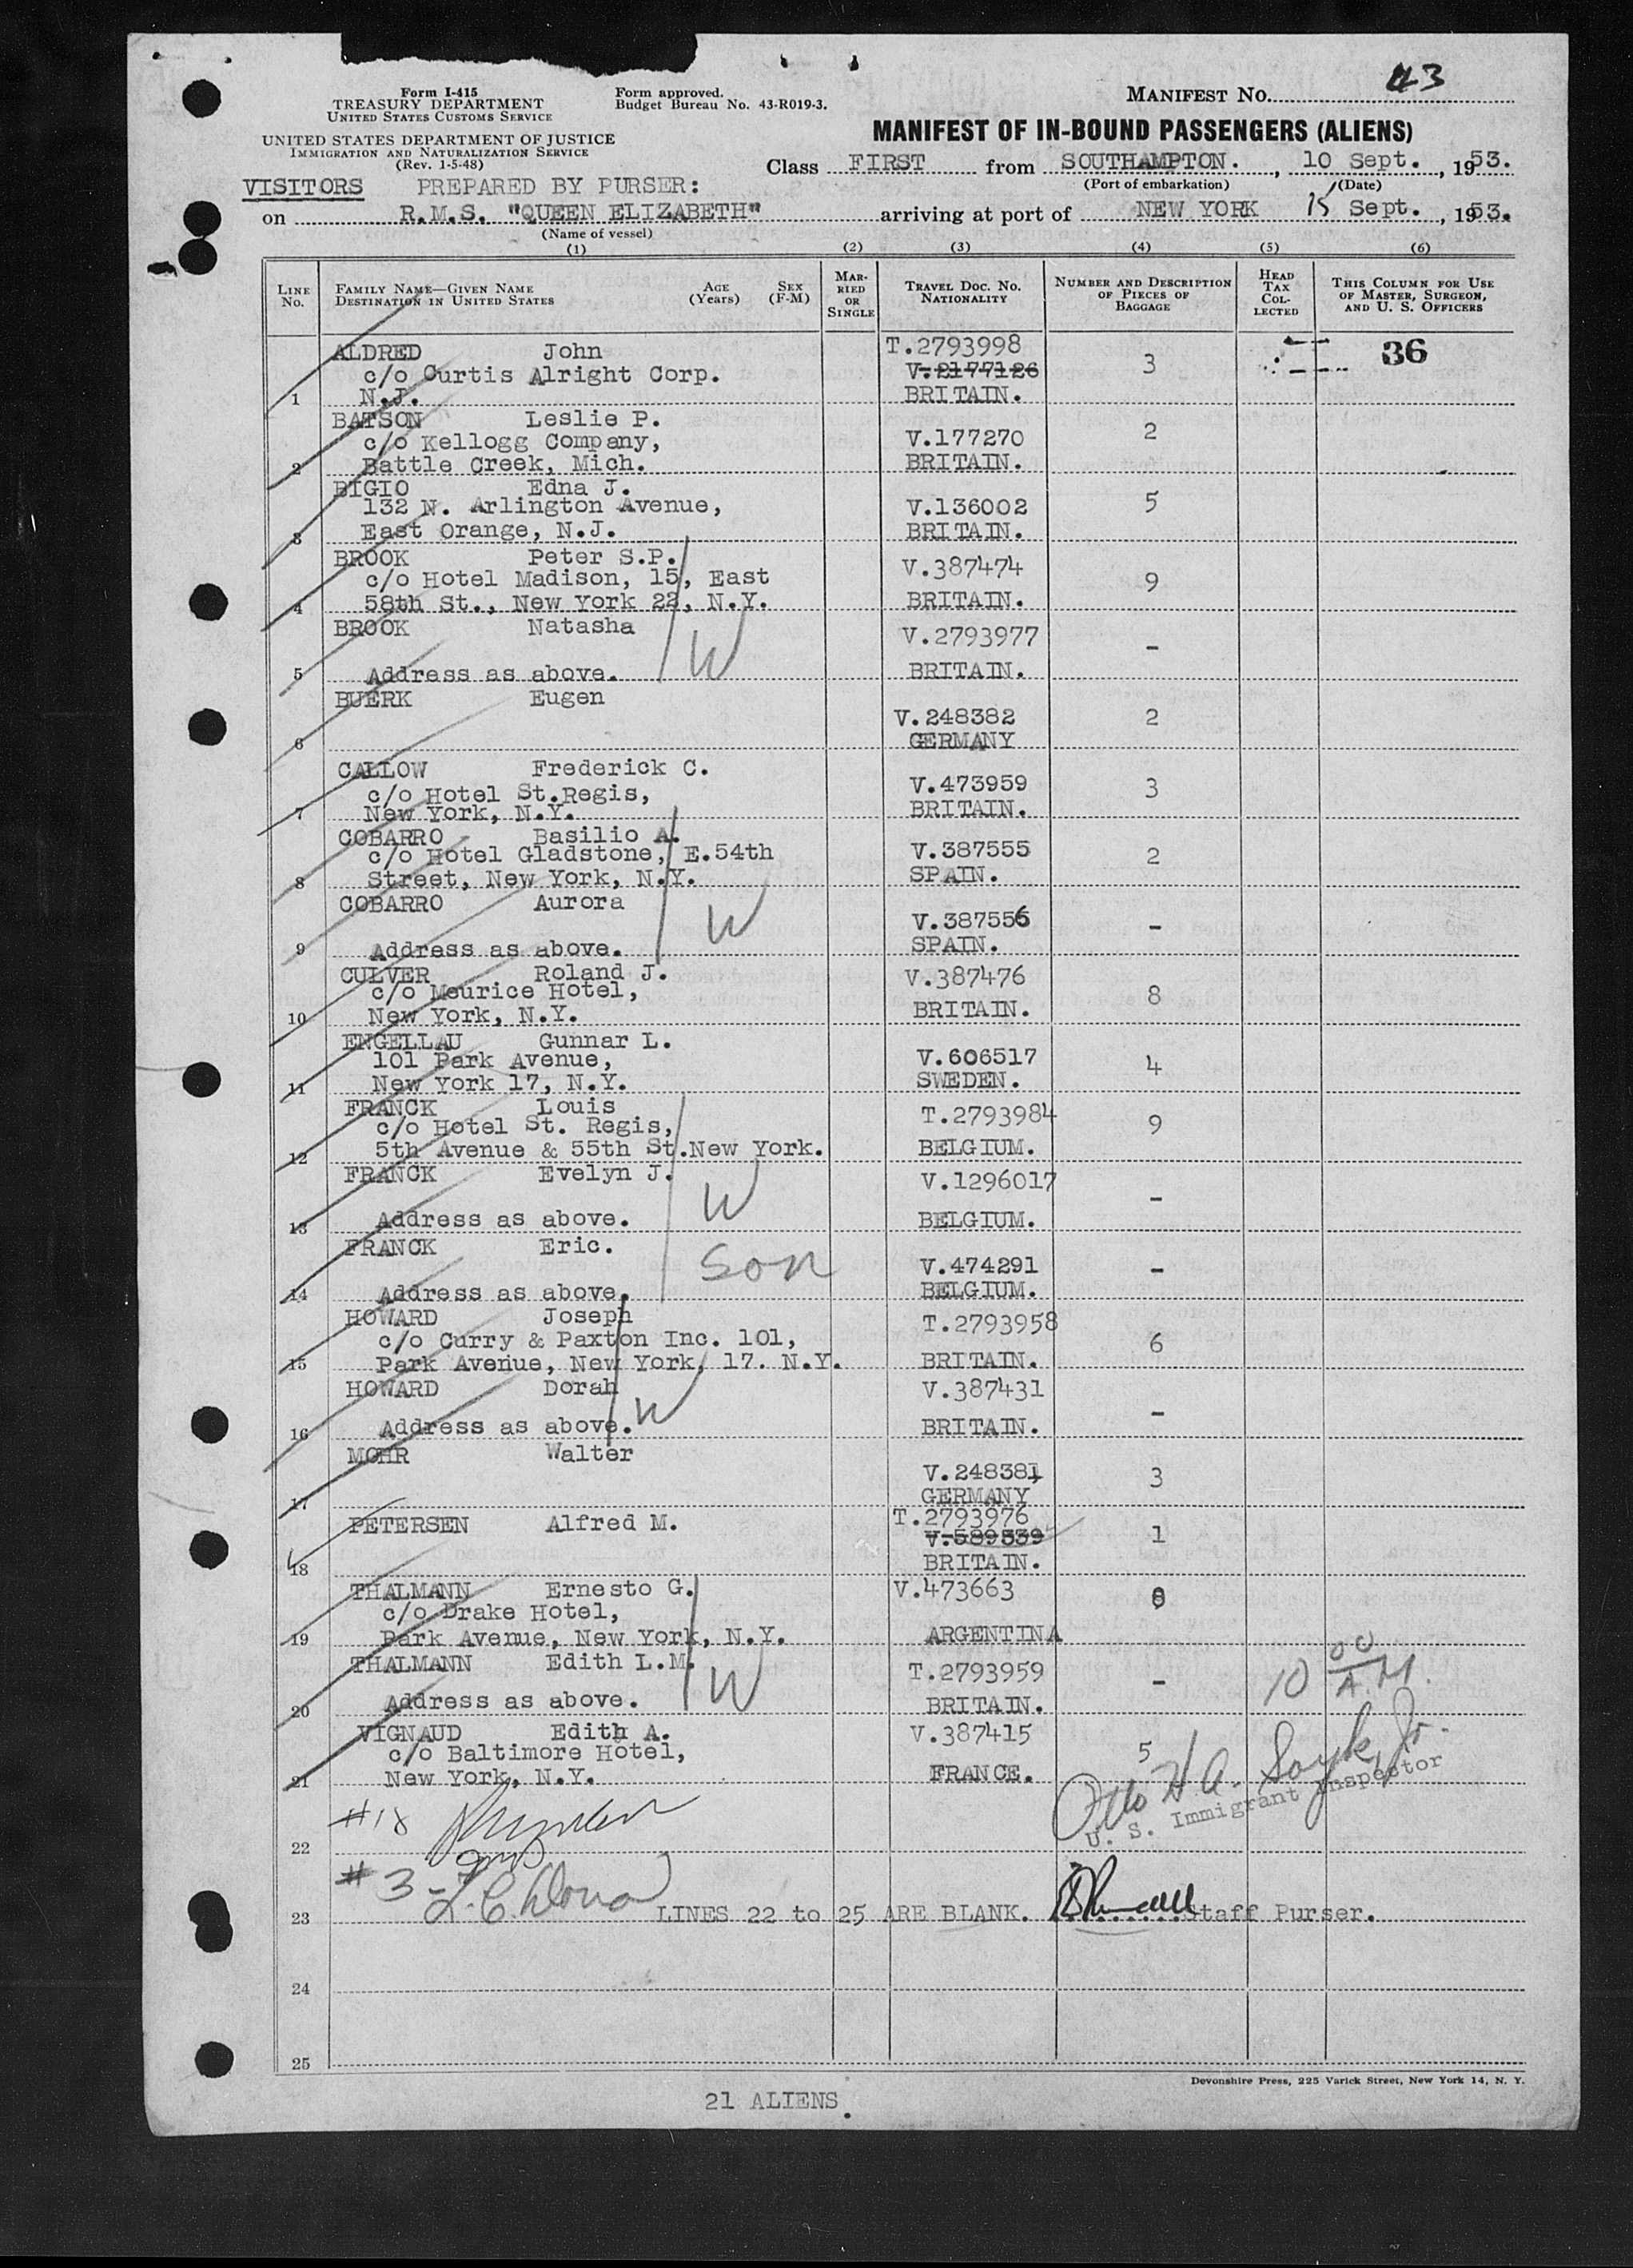 Form I-415
TREASURY DEPARTMENT
UNITED STATES CUSTOMS SERVICE
UNITED STATES DEPARTMENT OF JUSTICE
IMMIGRATION AND NATURALIZATION SERVICE
(Rev. 1-5-48)
Form approved.
Budget Bureau No. 43-R019-3.
MANIFEST NO. 43
MANIFEST OF IN-BOUND PASSENGERS (ALIENS)
Class FIRST from SOUTHAMPTON. , 10 Sept. , 1953.
(Port of embarkation) (Date)
VISITORS PREPARED BY PURSER:
on R.M.S. "QUEEN ELIZABETH" arriving at port of NEW YORK 15 Sept. , 1953.
(Name of vessel)
(1) (2) (3) (4) (5) (6)
LINE No. FAMILY NAME—GIVEN NAME DESTINATION IN UNITED STATES AGE (Years) SEX (F-M) MARRIED OR SINGLE TRAVEL DOC. NO. NATIONALITY NUMBER AND DESCRIPTION OF PIECES OF BAGGAGE HEAD TAX COLLECTED THIS COLUMN FOR USE OF MASTER, SURGEON, AND U. S. OFFICERS
ALDRED John T.2793998 36
c/o Curtis Alright Corp. V.2177126 3
1 N.J. BRITAIN.
BATSON Leslie P.
c/o Kellogg Company, V.177270 2
2 Battle Creek, Mich. BRITAIN.
BIGIO Edna J.
132 N. Arlington Avenue, V.136002 5
3 East Orange, N.J. BRITAIN.
BROOK Peter S.P. V.387474
c/o Hotel Madison, 15, East 9
4 58th St., New York 22, N.Y. BRITAIN.
BROOK Natasha V.2793977 -
W
5 Address as above. BRITAIN.
BUERK Eugen
V.248382 2
6 GERMANY
CALLOW Frederick C.
c/o Hotel St.Regis, V.473959 3
7 New York, N.Y. BRITAIN.
COBARRO Basilio A.
c/o Hotel Gladstone, E.54th V.387555 2
8 Street, New York, N.Y. SPAIN.
COBARRO Aurora
W V.387556 -
9 Address as above. SPAIN.
CULVER Roland J. V.387476
c/o Meurice Hotel, 8
10 New York, N.Y. BRITAIN.
ENGELLAU Gunnar L.
101 Park Avenue, V.606517 4
11 New York 17, N.Y. SWEDEN.
FRANCK Louis T.2793984
c/o Hotel St. Regis, 9
12 5th Avenue & 55th St.New York. BELGIUM.
FRANCK Evelyn J. V.1296017
W -
13 Address as above. BELGIUM.
FRANCK Eric.
son V.474291 -
14 Address as above. BELGIUM.
HOWARD Joseph T.2793958
c/o Curry & Paxton Inc. 101, 6
15 Park Avenue, New York, 17. N.Y. BRITAIN.
HOWARD Dorah V.387431
W -
16 Address as above. BRITAIN.
MOHR Walter
V.248381 3
17 GERMANY
T.2793976
PETERSEN Alfred M. V.589539 1
18 BRITAIN.
THALMANN Ernesto G. V.473663
c/o Drake Hotel,
19 Park Avenue, New York, N.Y. ARGENTINA
THALMANN Edith L.M. T.2793959 - 10 00 A.M.
W
20 Address as above. BRITAIN.
VIGNAUD Edith A. V.387415
c/o Baltimore Hotel, 5
21 New York, N.Y. FRANCE.
U. S. Immigrant Inspector
#18
22
#3 -
23 LINES 22 to 25 ARE BLANK. Staff Purser.
24
25
Devonshire Press, 225 Varick Street, New York 14, N. Y.
21 ALIENS.